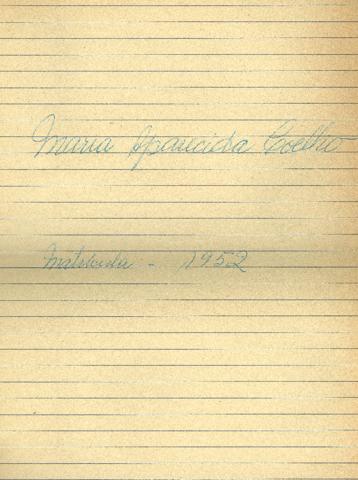 Maria Aparecida Coelho
- 1952